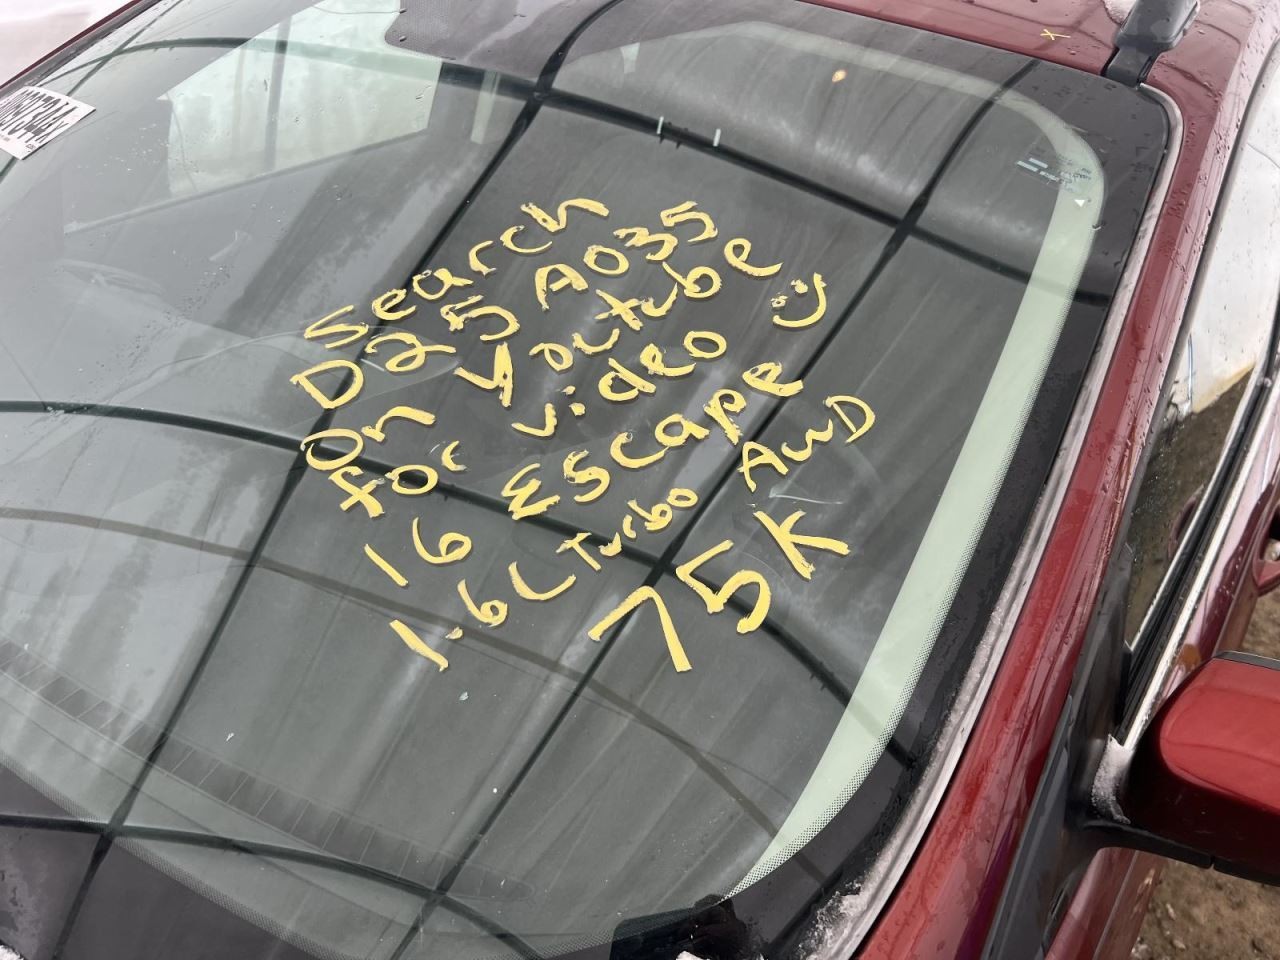 Search
D25A035
on Yoctube
for video :)
16 Escape
1.6L Turbo AWD
75K